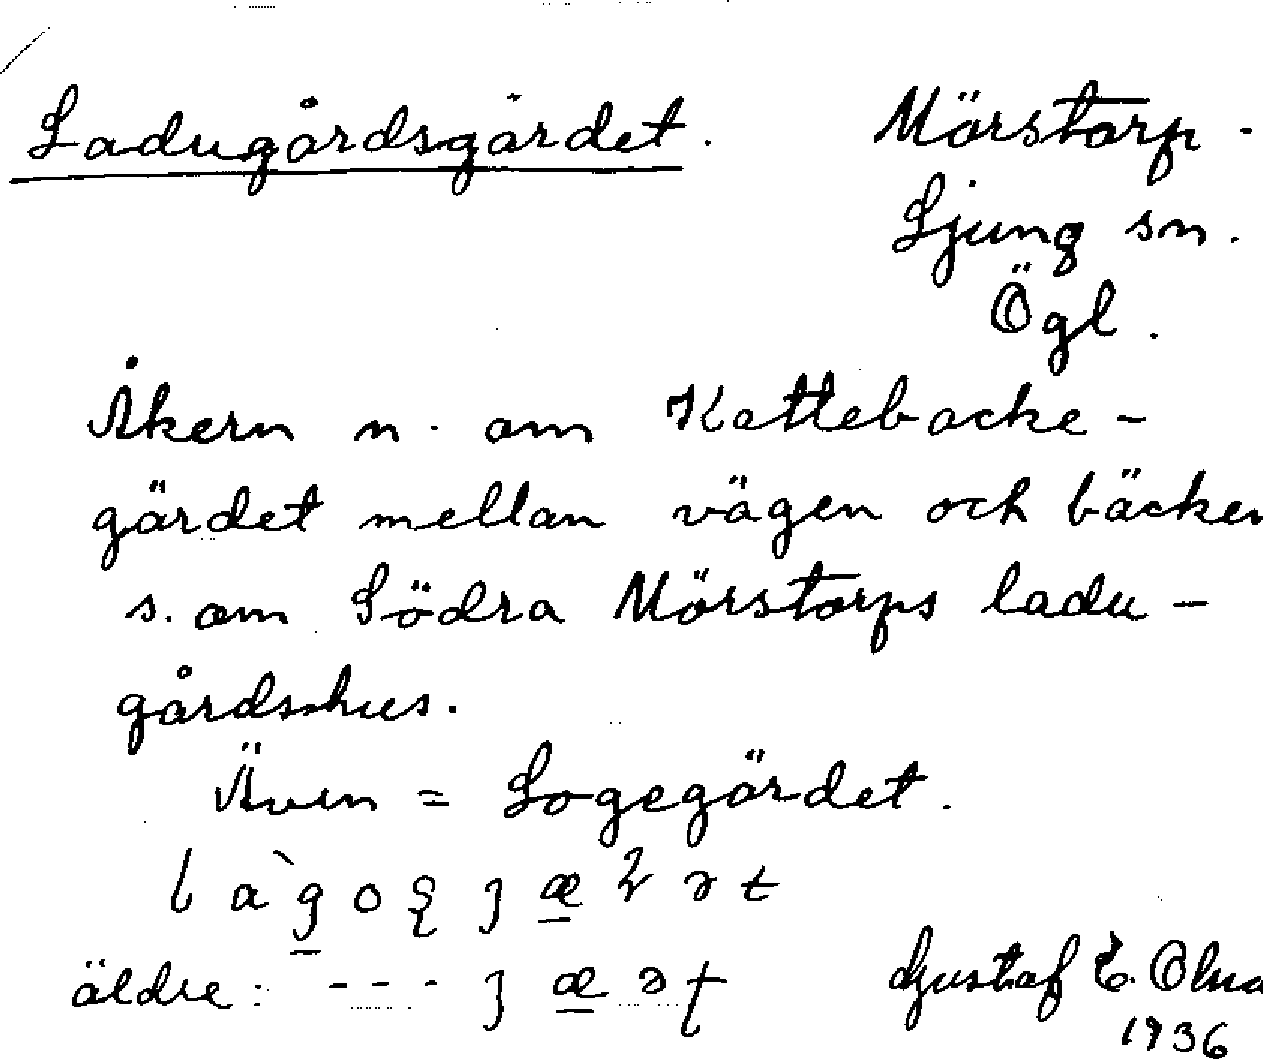 Ladugårdsgärdet. Mörstorp.
Ljung sn.
Ögl.
Åkern n. om Kattebacke-
gärdet mellan vägen och bäcken
s. om Södra Mörstorps ladu-
gårdshus.
Även = Logegärdet.
äldre: ---
Gustaf E. Olma
1936